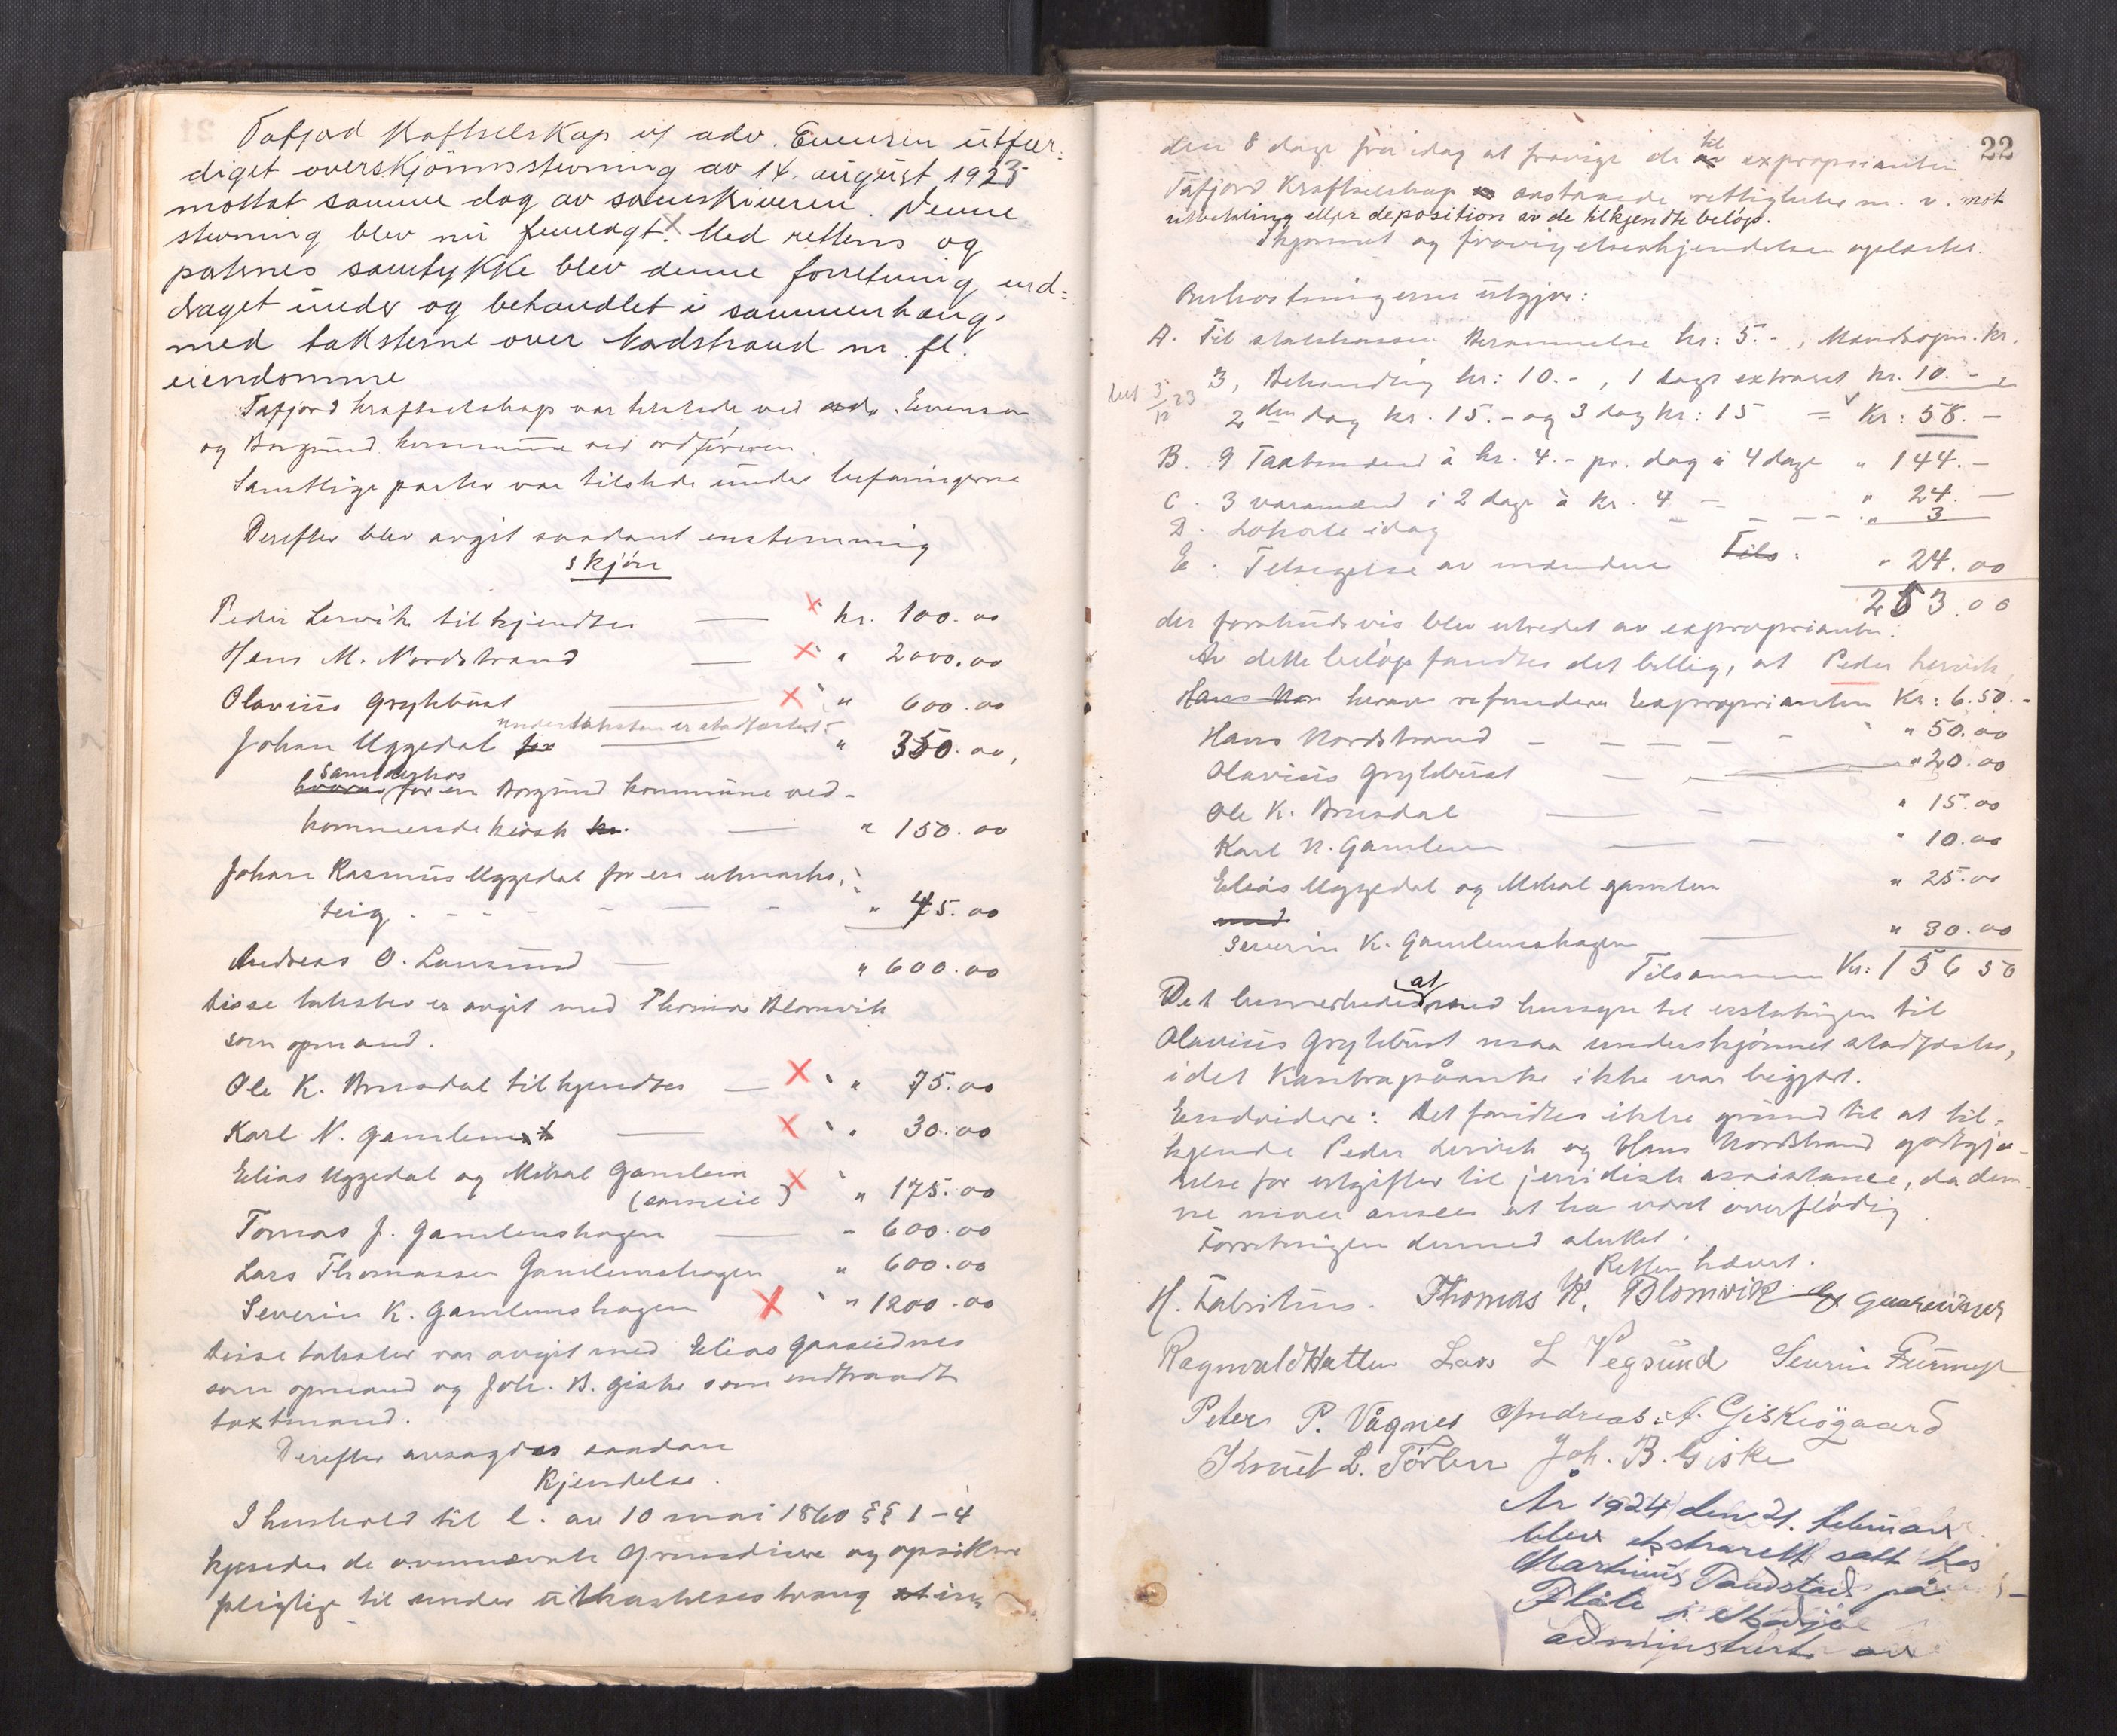 Tafjord Kraftselskap v/ adv. Evensen utfær-
diget overskjønnsstevning av 14. august 1923
mottat samme dag av sorenskriveren. Denne
stevning blev nu fremlagt. Med rettens og
parternes samtykke blev denne forretning ind-
draget under og behandlet i sammenhæng
med taksterne over Nordstrand m. fl.
eiendomme
Tafjord kraftselskap var tilstede ved adv. Evensen
og Borgund kommune ved ordføreren.
Samtlige parter var tilstede under befaringerne
Derefter blev avgit saadant enstemmig
skjøn
Peder Lervik tilkjendtes — kr. 100.00
Hans M. Nordstrand — " 2000.00
Olavius Grytebust — " 600.00
undertaksten er stadfæstet
Johan Uggedal for — " 350.00,
samt dashos
hvorav for en Borgund kommune ved-
kommende kiosk kr. — " 150.00
Johan Rasmus Uggedal for en utmarks-
teig - - - - - " 45.00
Andreas O. Lansund — " 600.00
Disse takster er avgit med Thomas Blomvik
som opmand.
Ole K. Brusdal tilkjendtes — " 75.00
Karl N. Gamlem — " 30.00
Elias Uggedal og Mikal Gamlem
(sameie) " 175.00
Tomas J. Gamlemshagen — " 600.00
Lars Thomassen Gamlemshagen " 600.00
Severin K. Gamlemshagen " 1200.00
Disse takster var avgit med Elias Gaaseidnes
som opmand og Joh. B. Giske som indtraadt
taxtmand.
Derefter avsagdes saadan
Kjendelse.
I henhold til l. av 10 mai 1860 §§ 1-4
kjendes de ovennævnte grundeiere og opsittere
pligtige til under utkastelsestvang at in-
22
den 8 dage fra idag at fravige de til av exproprianten
Tafjord Kraftselskap anstævnede rettigheter m. v. mot
utbetaling eller deposition av de tilkjendte beløp.
Skjønnet og fravigelseskjendelsen oplæstes.
Omkostningerne utgjør:
A. Til statskassen Berammelse kr: 5.-, Mandsopn. kr.
3, Behandling kr: 10.-, 1 dags extraret kr. 10.-
2den dag kr. 15.- og 3 dag kr: 15 = Kr: 58.-
B. 9 Taxtmænd à kr. 4.- pr. dag i 4 dage " 144.-
C. 3 varamænd i 2 dage à kr. 4 - " 24.-
D. Lokale idag - - - - " 3
E. Tilsigelse av mændene Tils: " 24.00
253.00
der forskudsvis blev utredet av exproprianten.
Av dette beløp fandtes det billig, at Peder Lervik
Hans Nor herav refunderer Exproprianten Kr: 6.50.-
Hans Nordstrand - - - - - " 50.00
Olavius Grytebust — " 20.00
Ole K. Brusdal — " 15.00
Karl N. Gamlem — " 10.00
Elias Uggedal og Mikal Gamlem " 25.00
med
Severin K. Gamlemshagen — " 30.00
Tilsammen Kr: 156 50
Det bemerkedes at med hensyn til erstatningen til
Olavius Grytebust maa underskjønnet stadfæstes,
idet kontrapåanke ikke var begjært.
Endvidere: Det fandtes ikke grund til at til-
kjende Peder Lervik og Hans Nordstrand godtgjø-
relse for utgifter til juridisk assistance, da den-
ne maa ansees at ha været overflødig.
Forretningen dermed sluttet.
Retten hævet.
H. Fabritius. Thomas K. Blomvik E. Gaaseidnes
Ragnvald Hatlen Lars L Vegsund Severin Furmyr
Peter P. Vågnes Andreas A. Giskeøgaard
Knut L. Tørlen Joh. B. Giske
År 1924 den 21. februar
blev ekstrarett satt hos
Martinus Tandstad på
Flåte i Skodje
administrert av